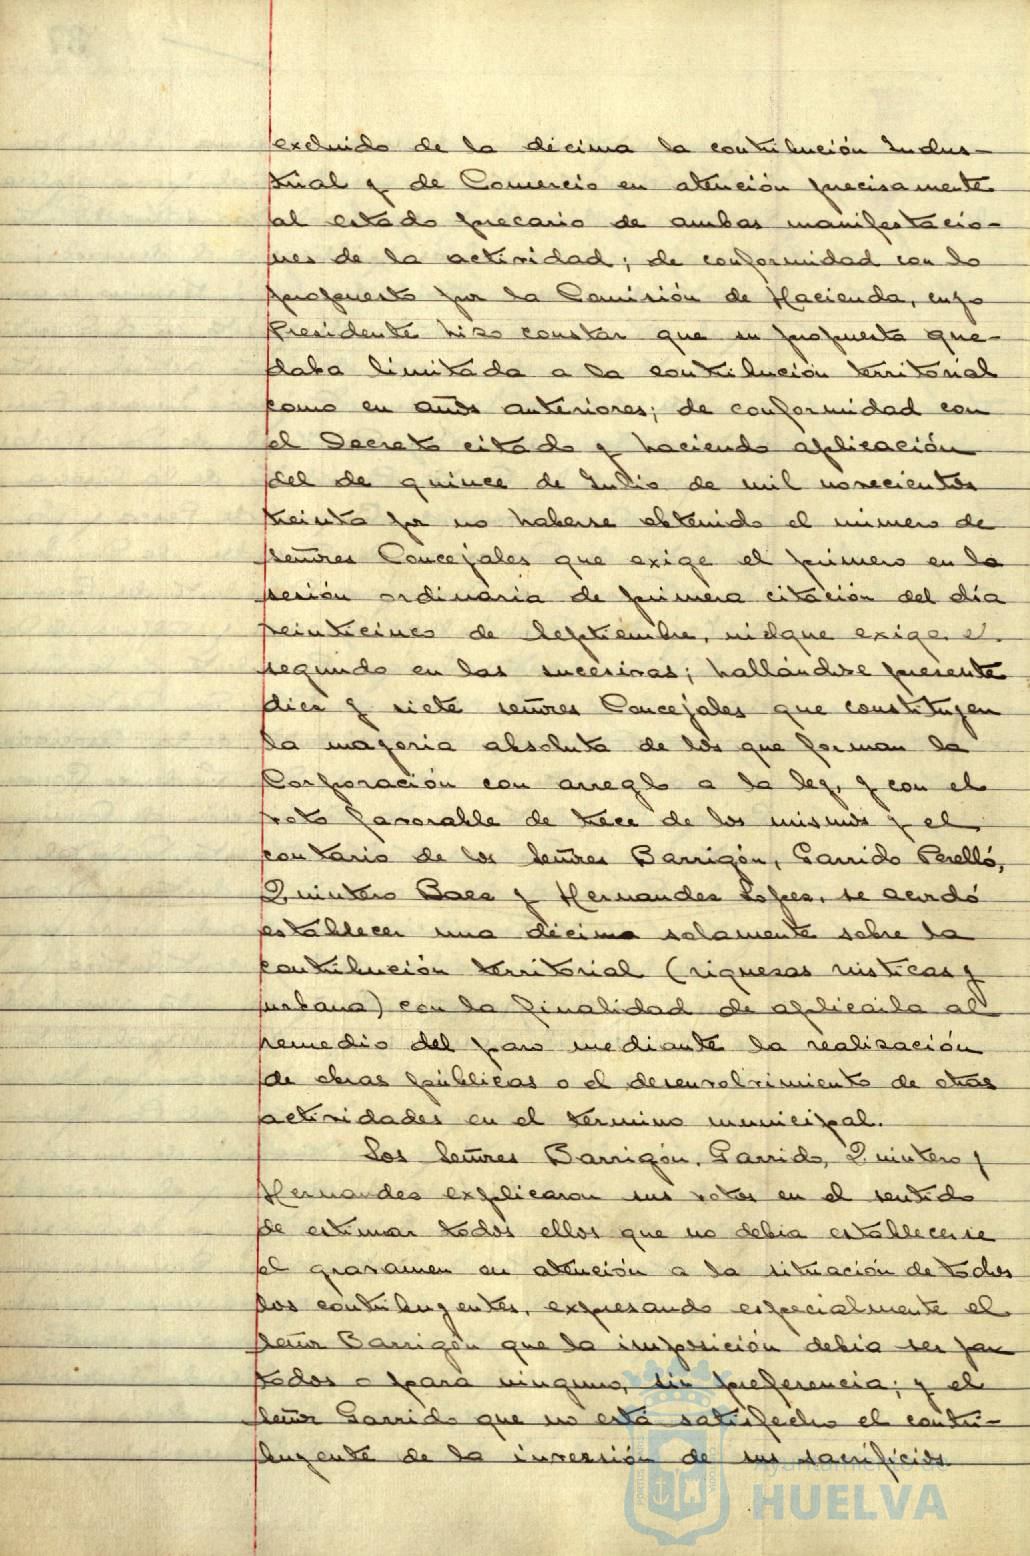 excluido de la décima la contribución Indus-
trial y de Comercio en atención precisamente
al estado precario de ambas manifestacio-
nes de la actividad; de conformidad con lo
propuesto por la Comisión de Hacienda, cuyo
Presidente hizo constar que su propuesta que-
daba limitada a la contribución territorial
como en años anteriores; de conformidad con
el Decreto citado y haciendo aplicación
del de quince de Julio de mil novecientos
treinta por no haberse obtenido el número de
señores Concejales que exige el primero en la
sesión ordinaria de primera citación del día
veinticinco de Septiembre, ni el que exige el
segundo en las sucesivas; hallándose presente
diez y siete señores Concejales que constituyen
la mayoría absoluta de los que forman la
Corporación con arreglo a la ley, y con el
voto favorable de trece de los mismos y el
contrario de los Señores Barrigón, Garrido Perelló,
Quintero Baez y Hernandez Lopez, se acordó
establecer una décima solamente sobre la
contribución territorial (riquezas rústicas y
urbana) con la finalidad de aplicarla al
remedio del paro mediante la realización
de obras públicas o el desenvolvimiento de otras
actividades en el término municipal.
Los Señores Barrigón, Garrido, Quintero y
Hernandez explicaron sus votos en el sentido
de estimar todos ellos que no debía establecerse
el gravamen en atención a la situación de todos
los contribuyentes, expresando especialmente el
Señor Barrigón que la imposición debía ser para
todos o para ninguno, sin preferencia; y el
Señor Garrido que no está satisfecho el contri-
buyente de la inversión de sus sacrificios.
Ayuntamiento de
HUELVA